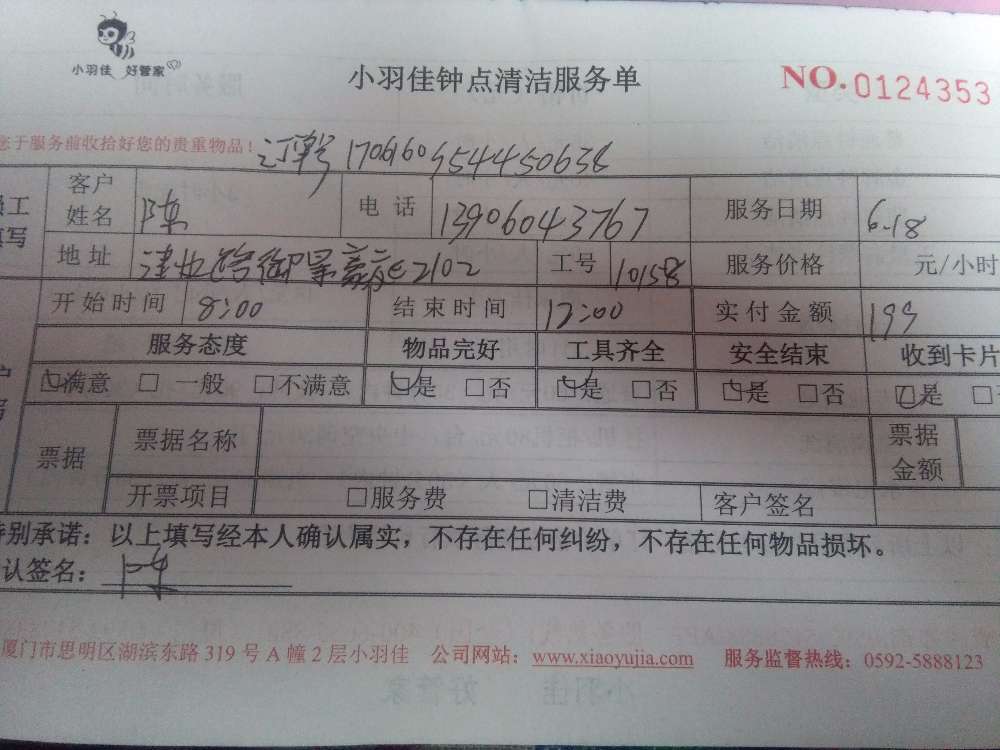 小羽佳 好管家
小羽佳钟点清洁服务单
NO.0124353
您于服务前收拾好您的贵重物品！订单号 17061609544450638
客户姓名 陈 电话 13906043767 服务日期 6.18
地址 2102 工号 10158 服务价格 元/小时
开始时间 8:00 结束时间 12:00 实付金额 199
服务态度 物品完好 工具齐全 安全结束 收到卡片
☑满意 □ 一般 □不满意 ☑是 □否 ☑是 □否 ☑是 □否 ☑是 □
票据 票据名称 票据金额
开票项目 □服务费 □清洁费 客户签名
特别承诺：以上填写经本人确认属实，不存在任何纠纷，不存在任何物品损坏。
认签名：陈
厦门市思明区湖滨东路 319 号 A 幢 2 层小羽佳 公司网站：www.xiaoyujia.com 服务监督热线：0592-5888123